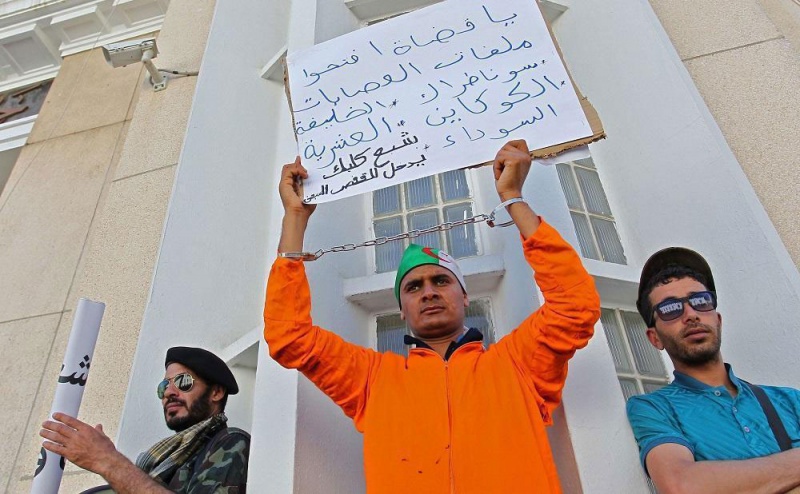 يا قضاة افتحوا
ملفات العصابات
سوناطراك . الخليفة
الكوكاين . العشرية
السوداء .
شبع كليك
يدخل للقفص